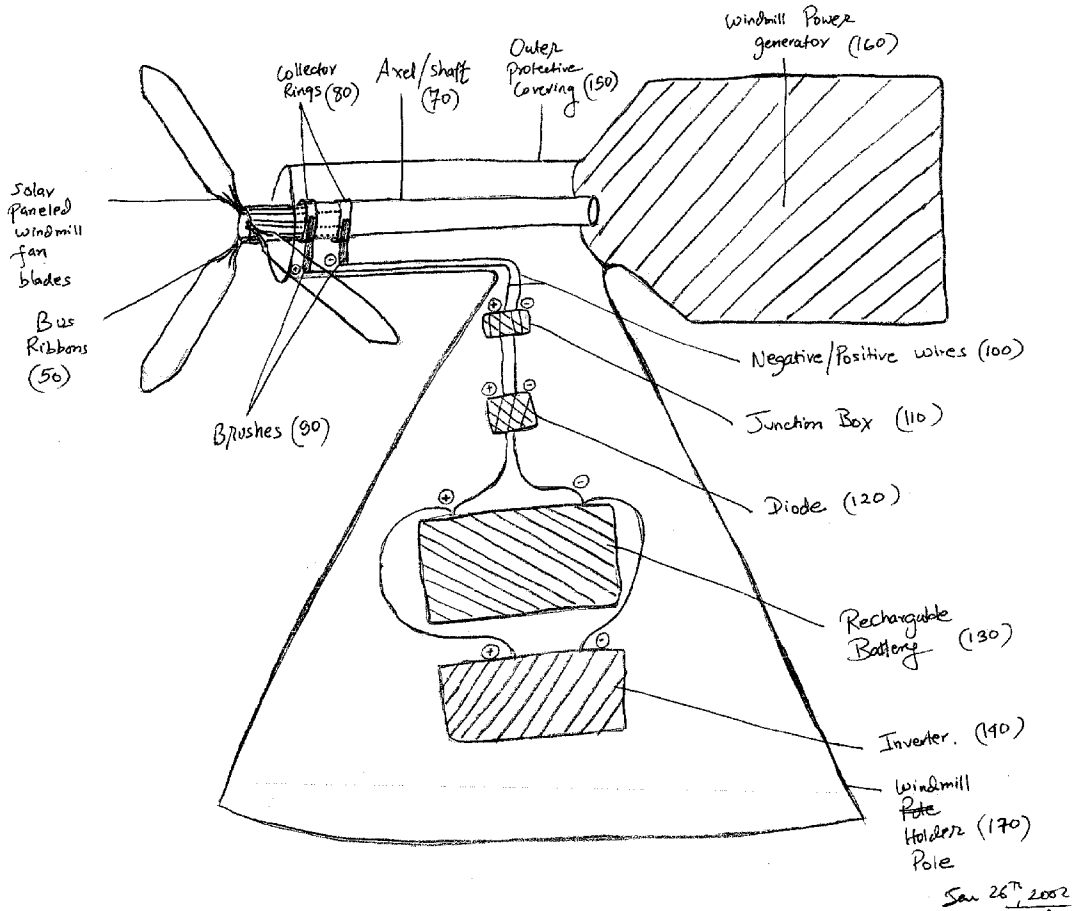 Windmill Power
generator (160)
Outer
Protective
Covering (150)
Axel/shaft
(70)
Collector
Rings (80)
Solar
Paneled
windmill
fan
blades
Bus
Ribbons
(50)
Brushes (90)
+
-
+
-
Negative/Positive wires (100)
+
-
Junction Box (110)
+
-
Diode (120)
Rechargable
Battery (130)
+
-
Inverter. (140)
Windmill
Pole
Holder (170)
Pole
Jan 26th, 2002